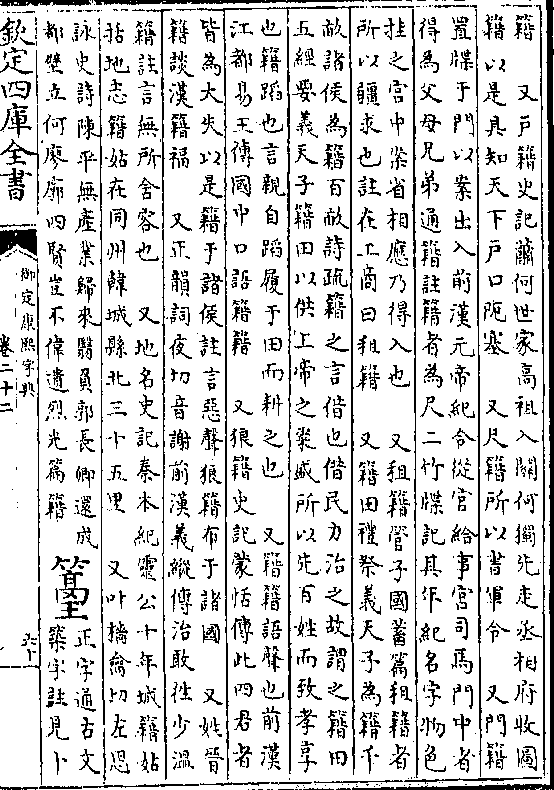 籍　又戸籍史記蕭何世家高祖入關何獨先走丞相府收圖
籍以是具知天下戸口阨塞　又尺籍所以書軍令　又門籍
置牒于門以案出入前漢元帝紀令從官給事宫司馬門中者
得為父母兄弟通籍註籍者為尺二竹牒記其年紀名字物色
挂之宫中案省相應乃得入也　又租籍管子國蓄篇租籍者
所以彊求也註在工商曰租籍　又籍田禮祭義天子為籍千
畝諸侯為籍百畝詩疏籍之言借也借民力治之故謂之籍田
五經要義天子籍田以供上帝之粢盛所以先百姓而致孝享
也籍蹈也言親自蹈履于田而耕之也　又籍籍語聲也前漢
江都易王傳國中口語籍籍　又狼籍史記蒙恬傳此四君者
皆為大失以是籍于諸侯註言惡聲狼籍布于諸國　又姓晉
籍談漢籍福　又正韻詞夜切音謝前漢義縱傳治敢往少溫
籍註言無所含容也　又地名史記秦本紀靈公十年城籍姑
括地志籍姑在同州韓城縣北三十五里　又叶檣龠切左思
詠史詩陳平無產業歸來翳負郭長卿還成
都壁立何廖廓四賢豈不偉遺烈光篇籍
𥫽
正字通古文
築字註見卜
欽定四庫全書
御定康熙字典
卷二十二
六十